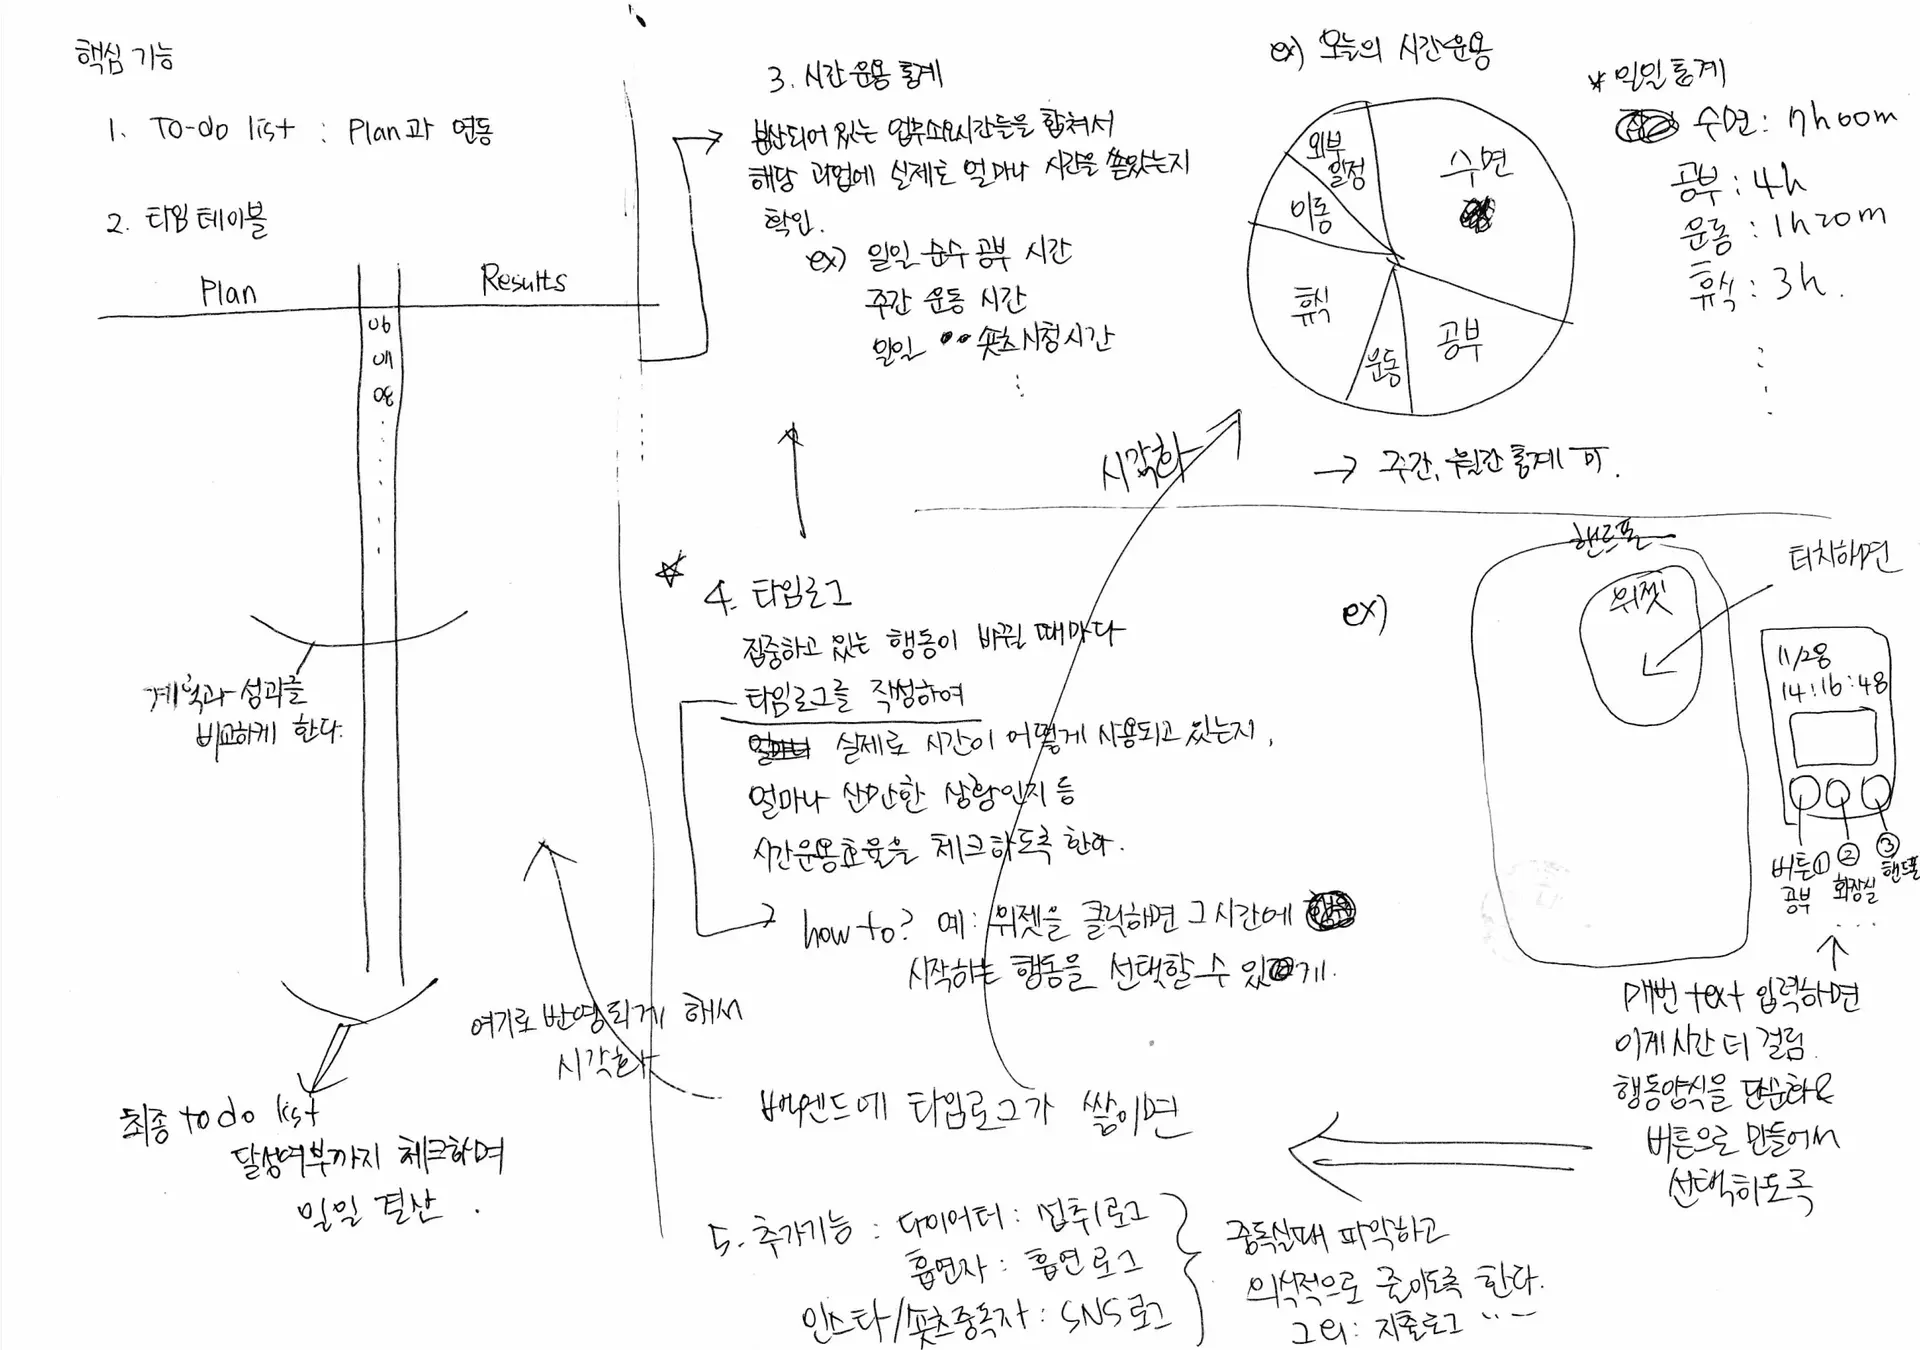 핵심 기능
1. To-do list : Plan과 연동
2. 타임테이블
Plan
Results
06
07
08
계획과 성과를
비교하게 한다.
최종 to do list
달성여부까지 체크하며
일일 결산.
3. 시간운용통계
분산되어 있는 업무소요시간들을 합쳐서
해당 과업에 실제로 얼마나 시간을 쏟았는지
확인.
ex) 일일 순수 공부 시간
주간 운동 시간
일일 숏츠시청시간
ex) 오늘의 시간운용
외부
일정
수면
이동
휴식
운동
공부
* 일일통계
수면: 7h00m
공부: 4h
운동: 1h20m
휴식: 3h.
→ 주간, 월간통계 可.
시각화
☆ 4. 타임로그
집중하고 있는 행동이 바뀔 때마다
타임로그를 작성하여
실제로 시간이 어떻게 사용되고 있는지,
얼마나 산만한 상황인지 등
시간운용효율을 체크하도록 한다.
how to? 예: 위젯을 클릭해면 그 시간에
시작하는 행동을 선택할 수 있게.
여기로 반영되게 해서
시각화
백엔드에 타임로그가 쌓이면
5. 추가기능 : 다이어터 : 섭취로그
흡연자 : 흡연로그
인스타/숏츠중독자 : SNS로그
중독실태 파악하고
의식적으로 줄이도록 한다.
그외: 지출로그 ...
ex)
핸드폰
위젯
터치하면
11/28
14:16:48
버튼① ② ③
공부 화장실 핸드폰
매번 text 입력하면
이게 시간 더 걸림.
행동양식을 단순화&
버튼으로 만들어서
선택하도록